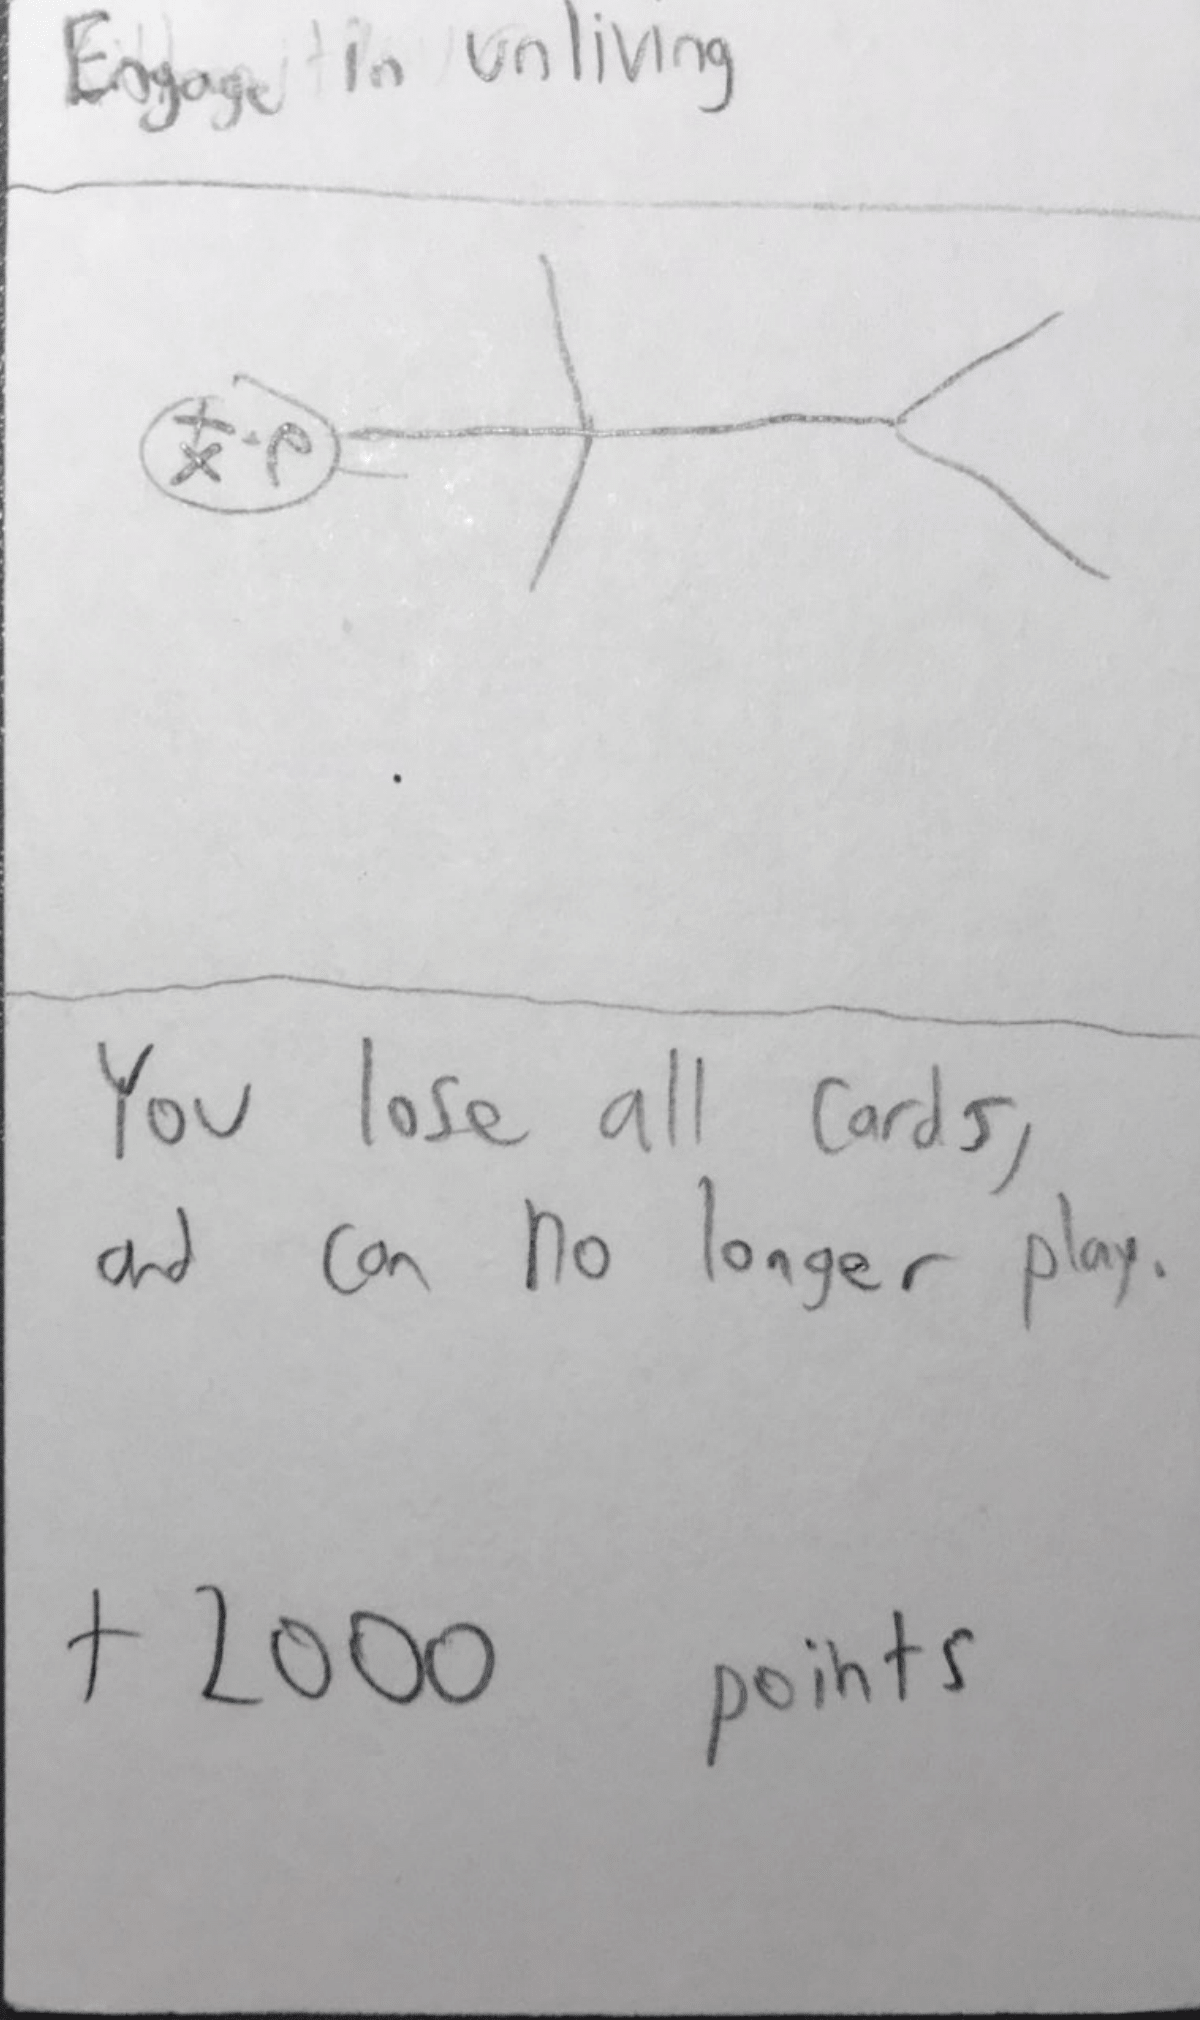 Engage in unliving
You lose all cards,
and can no longer play.
+ 2000 points